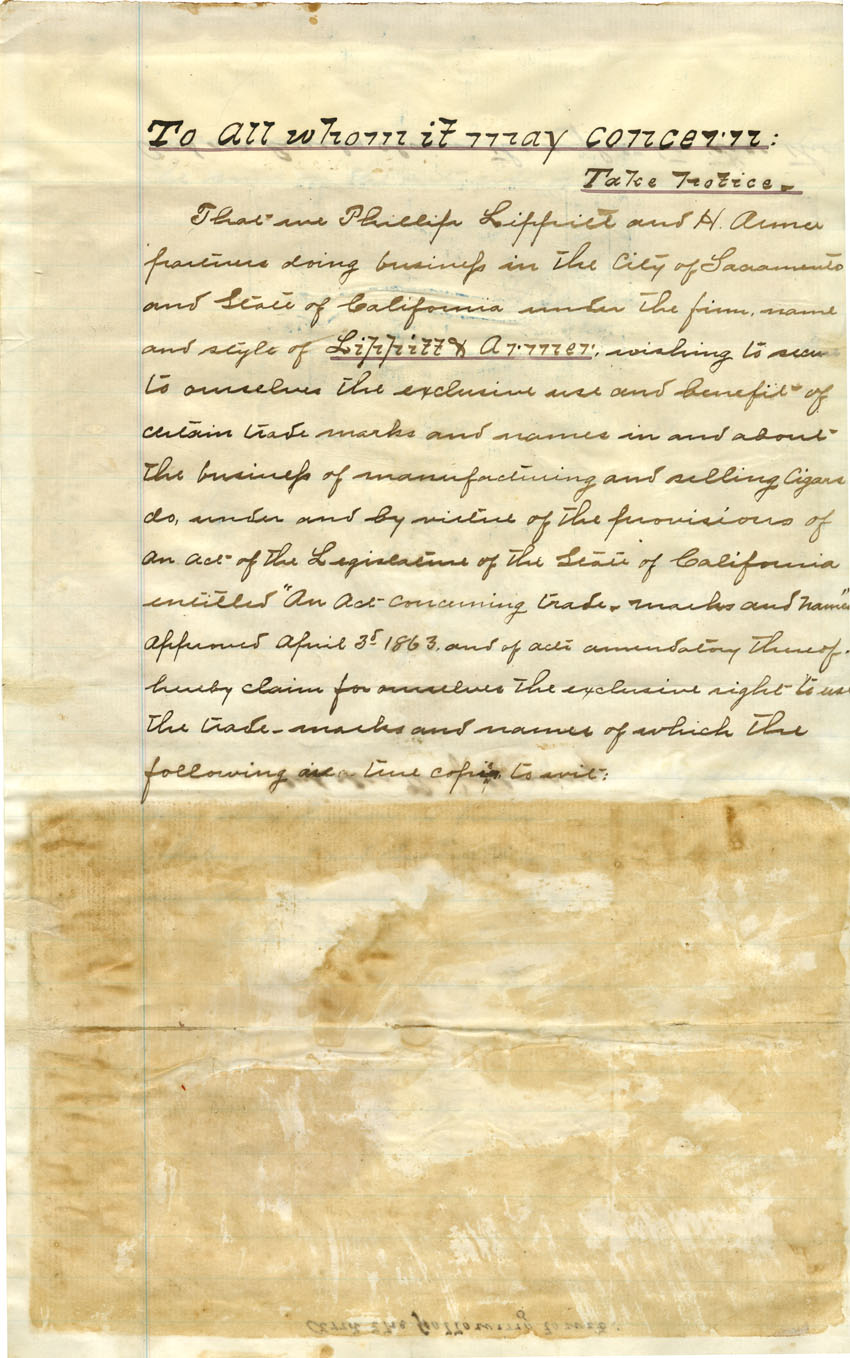 To all whom it may concern:
Take Notice.
That we Phillip Lippitt and H. Armer
partners doing business in the City of Sacramento
and State of California under the firm, name
and style of Lippitt & Armer, wishing to secu
to ourselves the exclusive use and benefit of
certain trade marks and names in and about
the business of manufacturing and selling Cigars
do, under and by virtue of the provisions of
an act of the Legislature of the State of California
entitled "An Act concerning trade-marks and names"
approved April 3d 1863, and of acts amendatory thereof.
hereby claim for ourselves the exclusive right to use
the trade-marks and names of which the
following is a true copy to wit:
And the following to wit: